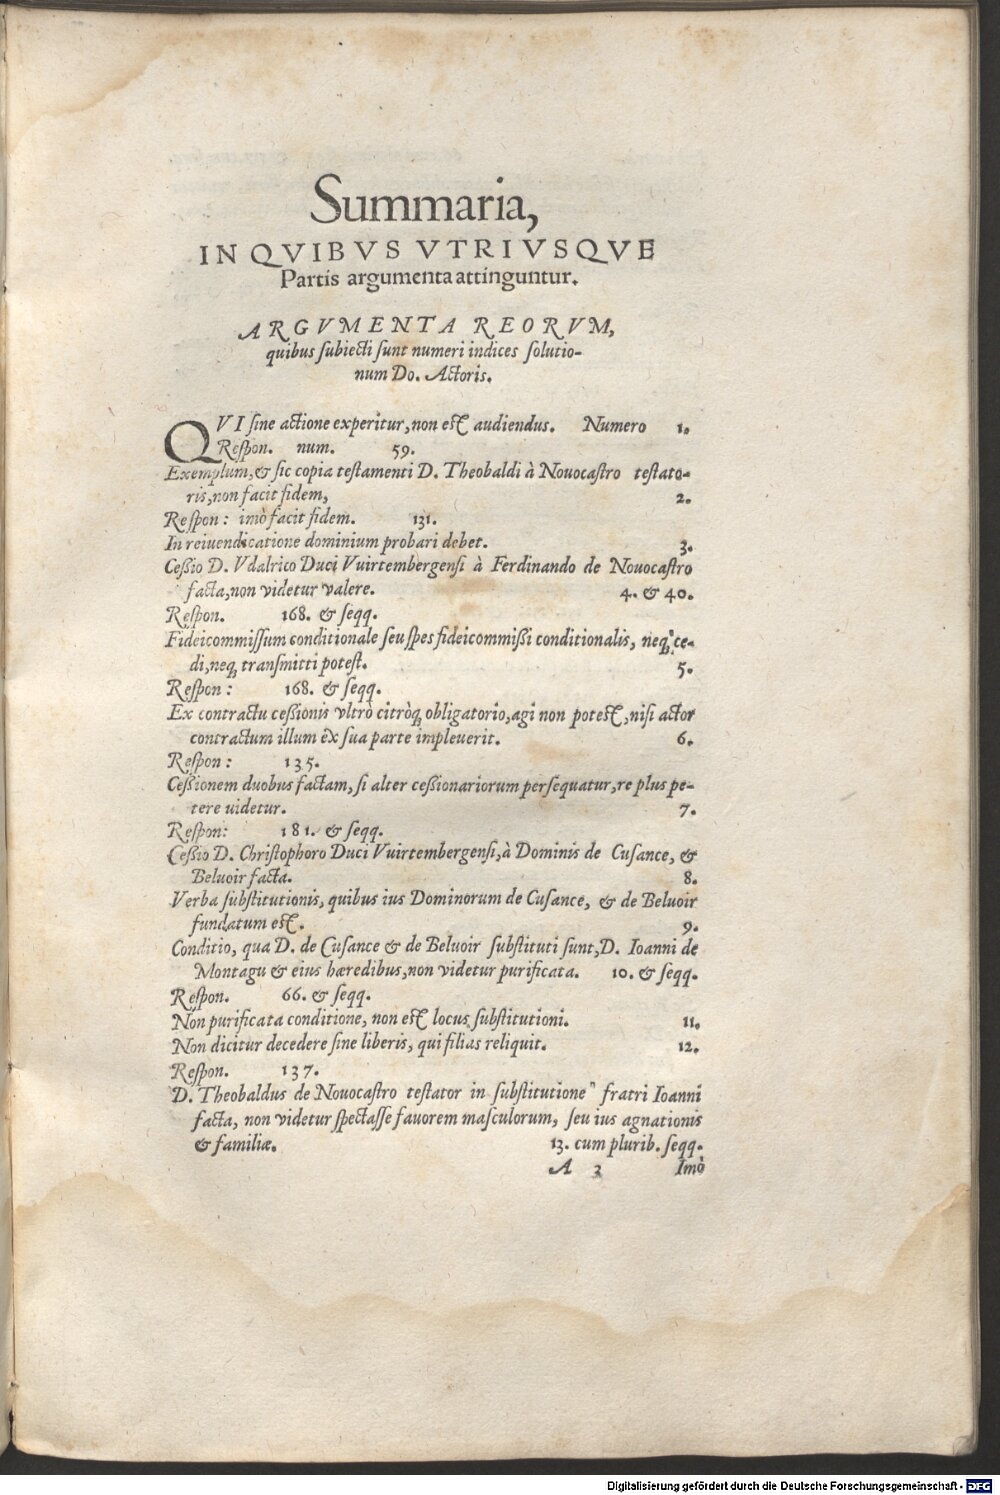 Summaria,
IN QVIBVS VTRIVSQVE
Partis argumenta attinguntur.
ARGVMENTA REORVM,
quibus ſubiecti ſunt numeri indices ſolutio-
num Do. Actoris.
QVI ſine actione experitur, non est audiendus. Numero 1.
Reſpon. num. 59.
Exemplum, & ſic copia teſtamenti D. Theobaldi à Novocaſtro teſtato-
ris, non facit fidem, 2.
Reſpon: imò facit fidem. 131.
In reiuendicatione dominium probari debet. 3.
Ceßio D. Vdalrico Duci Vuirtembergenſi à Ferdinando de Novocaſtro
facta, non videtur valere. 4. & 40.
Reſpon. 168. & ſeqq.
Fideicommiſſum conditionale ſeu ſpes fideicommißi conditionalis, neq; ce-
di, neq; tranſmitti poteſt. 5.
Reſpon: 168. & ſeqq.
Ex contractu ceßionis vltrò citròq; obligatorio, agi non potest, niſi actor
contractum illum ex ſua parte impleuerit. 6.
Reſpon: 135.
Ceßionem duobus factam, ſi alter ceßionariorum perſequatur, re plus pe-
tere uidetur. 7.
Reſpon: 181. & ſeqq.
Ceßio D. Chriſtophoro Duci Vuirtembergenſi, à Dominis de Cuſance, &
Beluoir facta. 8.
Verba ſubſtitutionis, quibus ius Dominorum de Cuſance, & de Beluoir
fundatum est. 9.
Conditio, qua D. de Cuſance & de Beluoir ſubſtituti ſunt, D. Ioanni de
Montagu & eius hæredibus, non videtur purificata. 10. & ſeqq.
Reſpon. 66. & ſeqq.
Non purificata conditione, non est locus ſubſtitutioni. 11.
Non dicitur decedere ſine liberis, qui filias reliquit. 12.
Reſpon. 137.
D. Theobaldus de Novocaſtro teſtator in ſubſtitutione fratri Ioanni
facta, non videtur ſpectaſſe fauorem maſculorum, ſeu ius agnationis
& familiæ. 13. cum plurib. ſeqq.
A 3 Imò
Digitalisierung gefördert durch die Deutsche Forschungsgemeinschaft - DFG